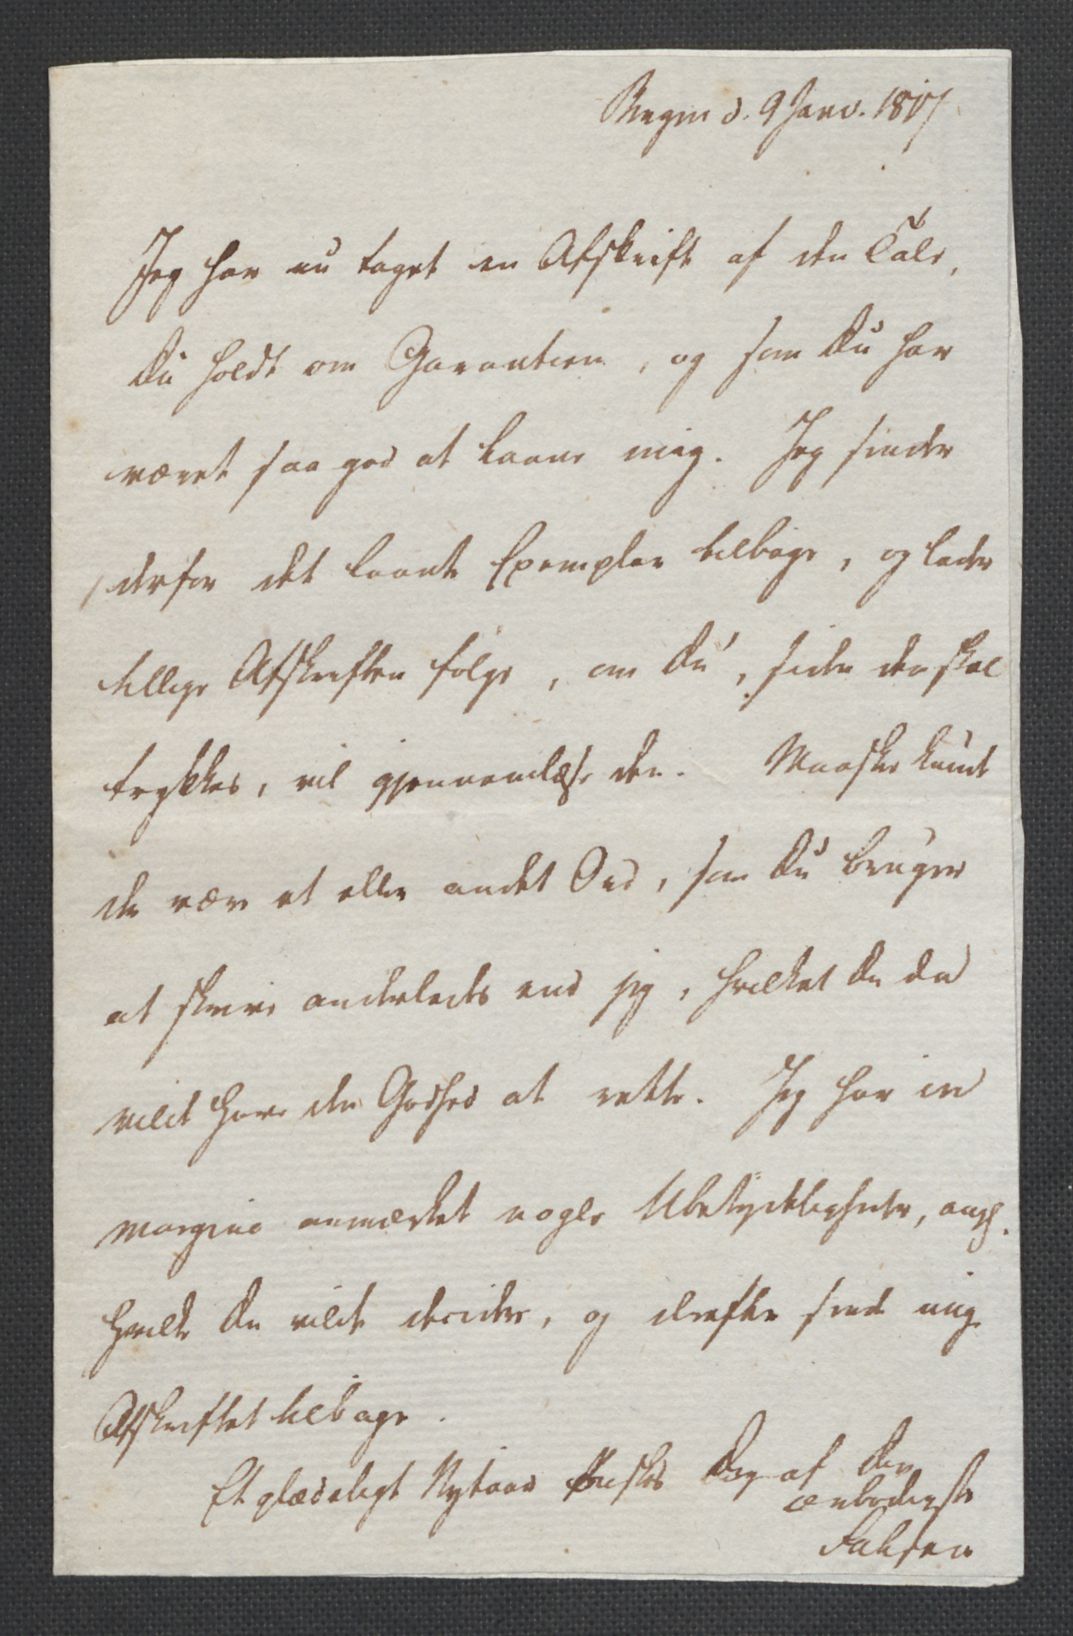 d. 9 Janv. 1817
Jeg har nu taget en Afskrift af den Tale,
Du holdt om Garantien, og som Du har
været saa god at laane mig. Jeg sender
derfor det laante Exemplar tilbage, og lader
tillige Afskriften følge, om Du, siden den skal
trykkes, vil gjennemlæse den. Maaskee kunde
der være et eller andet Ord, som Du bruger
at skrive anderledes end jeg, hvilket Du da
vilde have den Godhed at rette. Jeg har in
margine anmærket nogle Ubetydeligheder, ang.
hvilke Du vilde decidere, og derefter sende mig
Afskriftet tilbage.
Et glædeligt Nytaar ønskes Dig af Din
ærbødigste
Falsen